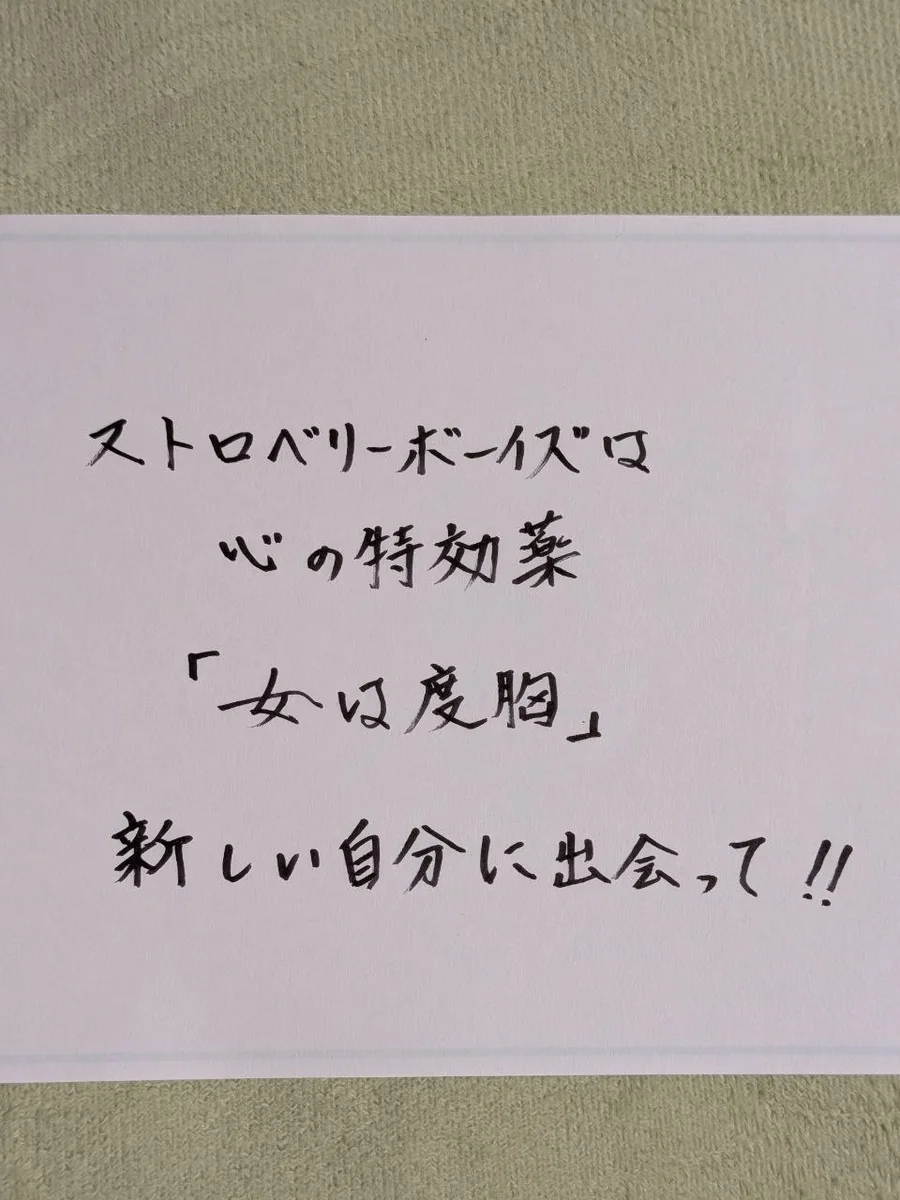 ストロベリーボーイズは
心の特効薬
「女は度胸」
新しい自分に出会って!!